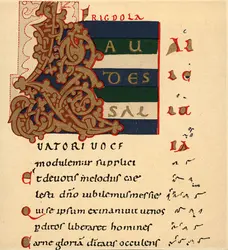 LAU
DES
SAL
UATORI UOCE
modulemur supplici
Et deuotis melodiis cae
lesti dño iubilemus messie
Qui se ipsum exinaniuit ut nos
pditos liberaret homines
Carne gloriã deitatis occulens